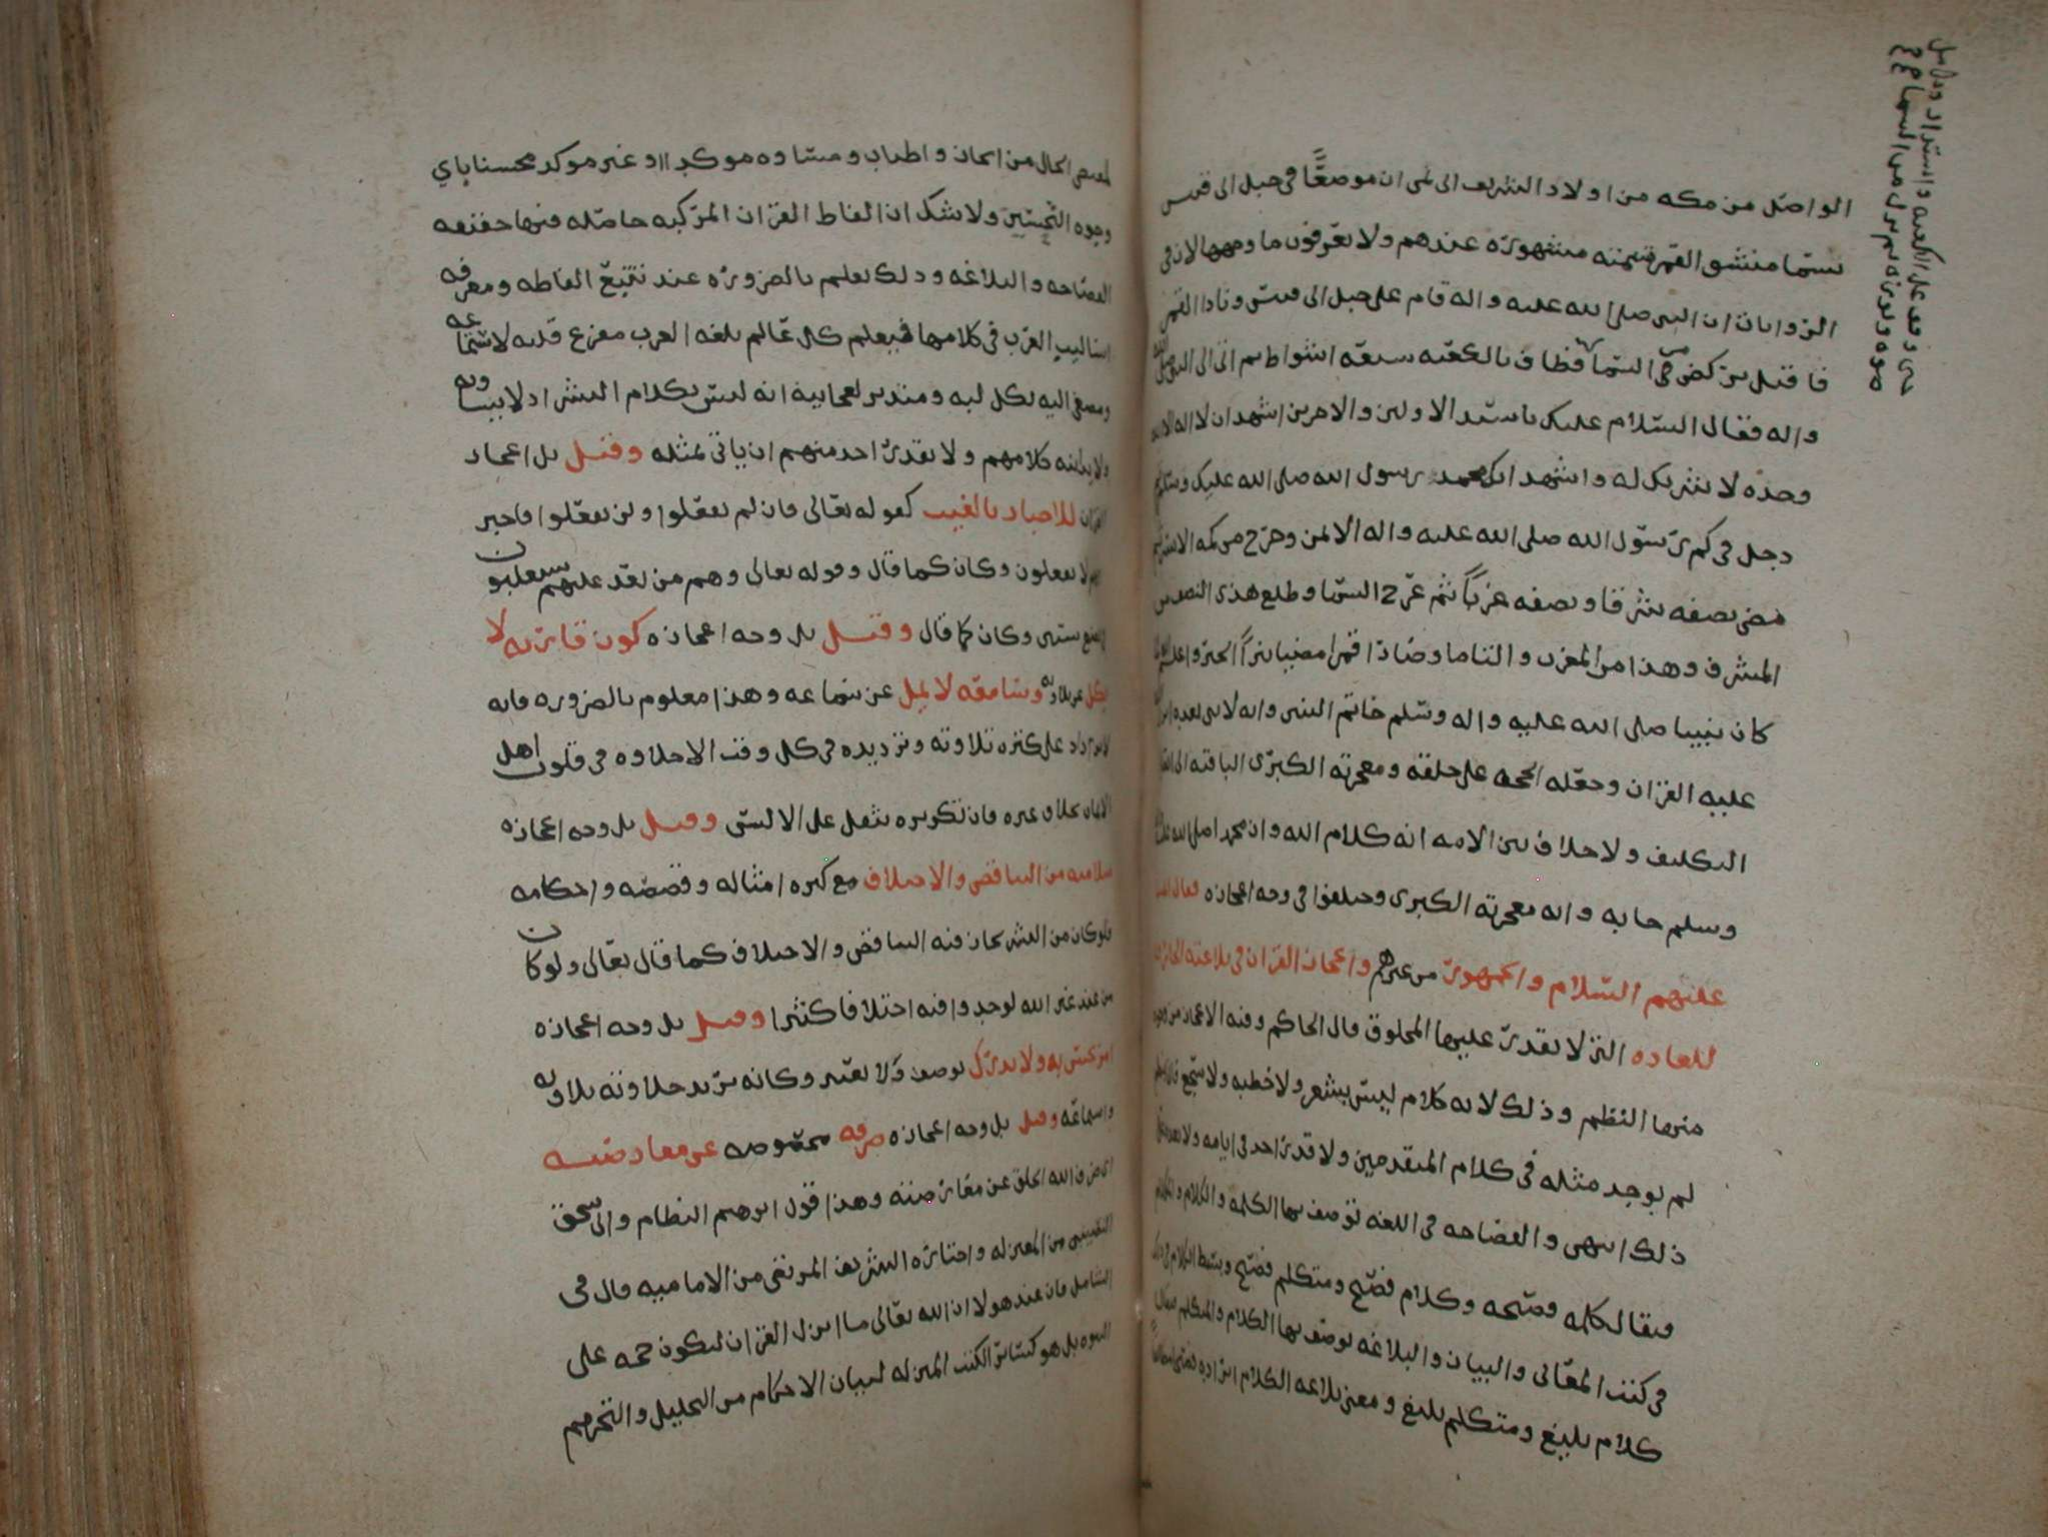 الواصل من مكه من اولاد الشريف الى نمى ان موضعًا فى جبل الى قبيس
يسما منشق القمر قيمته مشهوره عندهم ولا يعرفون ما وجهها الان فى
الروايات ان النبى صلى الله عليه واله قام على جبل ابى قبيس ونادا القمر
فاقبل يركض فى السما فطاف بالكعبه سبعه اشواط ثم اتى الى النبى صلى
واله فقال السلام عليك يا سيد الاولين والاخرين اشهد ان لا اله الا الله
وحده لا شريك له واشهد انك محمد رسول الله صلى الله عليك وسلم ثم
دخل فى كم رسول الله صلى الله عليه واله الايمن وخرج من كمه الايسر ثم
مضى نصفه شرقا ونصفه غربًا ثم عرج السما وطلع هذى النصف من
المشرق وهذا من المغرب والتاما وصارا قمرا مضيا نيرًا الخبر واعلم
كان نبينا صلى الله عليه واله وسلم خاتم النبيين وانه لا نبى بعده انزل
عليه القران وجعله الحجه على خلقه ومعجزته الكبرى الباقيه الى انقضا
التكليف ولا خلاف بين الامه انه كلام الله وان محمدا صلى الله عليه
وسلم جا به وانه معجزته الكبرى وختلفوا فى وجه اعجازه فقال
عليهم السلام والجمهور من غيرهم واعجاز القران فى بلاغته الخارقه
للعاده التى لا يقدر عليها المخلوق قال الحاكم وفيه الاعجاز من وجوه
منها النظم وذلك لانه كلام ليس بشعر ولا خطبه ولا سجع
لم يوجد مثله فى كلام المتقدمين ولا قدر احد فى ايامه ولا بعده على
ذلك انتهى والفصاحه فى اللغه توصف بها الكلمه والكلام والمتكلم
فيقال كلمه فصيحه وكلام فصيح ومتكلم فصيح وبسط الكلام فى ذلك
فى كتب المعانى والبيان والبلاغه يوصف بها الكلام والمتكلم فيقال
كلام بليغ ومتكلم بليغ ومعنى بلاغه الكلام ايراده
لمقتضى الحال من ايجاز واطناب ومساوه موكدا او غير موكد محسنا باي
وجوه التحسين ولا شك ان الفاظ القران المركبه حاصله فيها حقيقه
الفصاحه والبلاغه وذلك يعلم بالضروره عند تتبع الفاظه ومعرفه
اساليب العرب فى كلامها فيعلم كل عالم بلغه العرب مفزع قلبه لاستماعه
ومصغ اليه بكل لبه ومتدبر لعجايبه انه ليس بكلام البشر اذ لا يساويه
ولا يدانيه كلامهم ولا يقدر احد منهم ان ياتى بمثله وقيل بل اعجاز
القران للاخبار بالغيب كقوله تعالى فان لم تفعلوا ولن تفعلوا فاخبر
انهم لا يفعلون وكان كما قال وقوله تعالى وهم من بعد غلبهم سيغلبون
فى بضع سنين وكان كما قال وقيل بل وجه اعجازه كون قاريه لا
يكل عن تلاوته وسامعه لا يمل عن سماعه وهذا معلوم بالضروره فانه
لا يزداد على كثره تلاوته وترديده فى كل وقت الا حلاوه فى قلوب اهل
الايمان بخلاف غيره فان تكريره يثقل على الالسن وقيل بل وجه اعجازه
سلامته من التناقض والاختلاف مع كثره امثاله وقصصه واحكامه
فلو كان من البشر لكان فيه التناقض والاختلاف كما قال تعالى ولو كان
من عند غير الله لوجدوا فيه اختلافا كثيرا وقيل بل وجه اعجازه
امر يحس به ولا يدرك بوصف ولا يعتبر وكانه يريد حلاوته تلاوته
واسماعه وقيل بل وجه اعجازه صرفه مخصوصه عن معارضته
اى صرف الله الخلق عن معارضته وهذا قول ابرهيم النظام وابى اسحق
النصيبى من المعتزله واختاره الشريف المرتضى من الاماميه قال فى
الشامل فان عند هولا ان الله تعالى ما انزل القران ليكون حجه على
النبوه بل هو كساير الكتب المنزله لبيان الاحكام من التحليل والتحريم